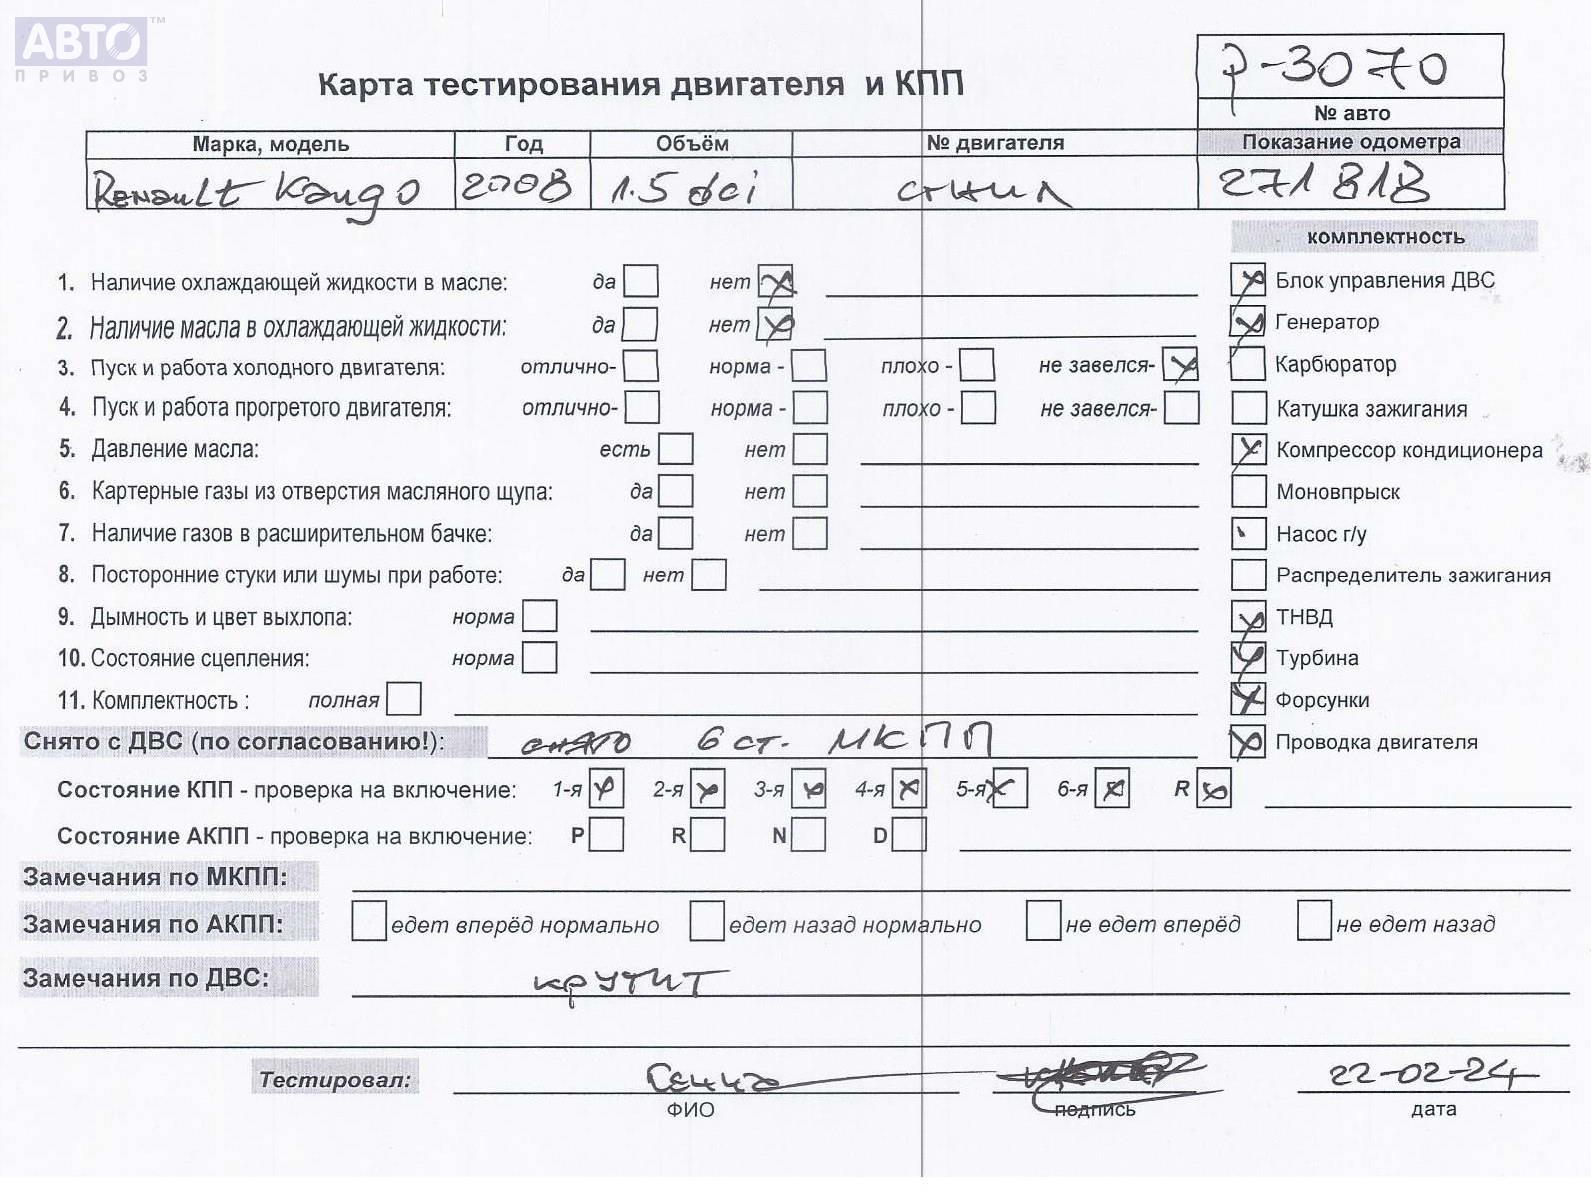 АВТО ™
ПРИВОЗ
Карта тестирования двигателя и КПП
Р-3070
№ авто
Марка, модель Год Объём № двигателя Показание одометра
Renault Kango 2008 1.5 dci сгнил 271818
комплектность
1. Наличие охлаждающей жидкости в масле: да нет Блок управления ДВС
2. Наличие масла в охлаждающей жидкости: да нет Генератор
3. Пуск и работа холодного двигателя: отлично- норма - плохо - не завелся- Карбюратор
4. Пуск и работа прогретого двигателя: отлично- норма - плохо - не завелся- Катушка зажигания
5. Давление масла: есть нет Компрессор кондиционера
6. Картерные газы из отверстия масляного щупа: да нет Моновпрыск
7. Наличие газов в расширительном бачке: да нет Насос г/у
8. Посторонние стуки или шумы при работе: да нет Распределитель зажигания
9. Дымность и цвет выхлопа: норма ТНВД
10. Состояние сцепления: норма Турбина
11. Комплектность : полная Форсунки
Снято с ДВС (по согласованию!): 6 ст. МКПП Проводка двигателя
Состояние КПП - проверка на включение: 1-я 2-я 3-я 4-я 5-я 6-я R
Состояние АКПП - проверка на включение: P R N D
Замечания по МКПП:
Замечания по АКПП: едет вперёд нормально едет назад нормально не едет вперёд не едет назад
Замечания по ДВС: крутит
Тестировал: 22-02-24
ФИО подпись дата